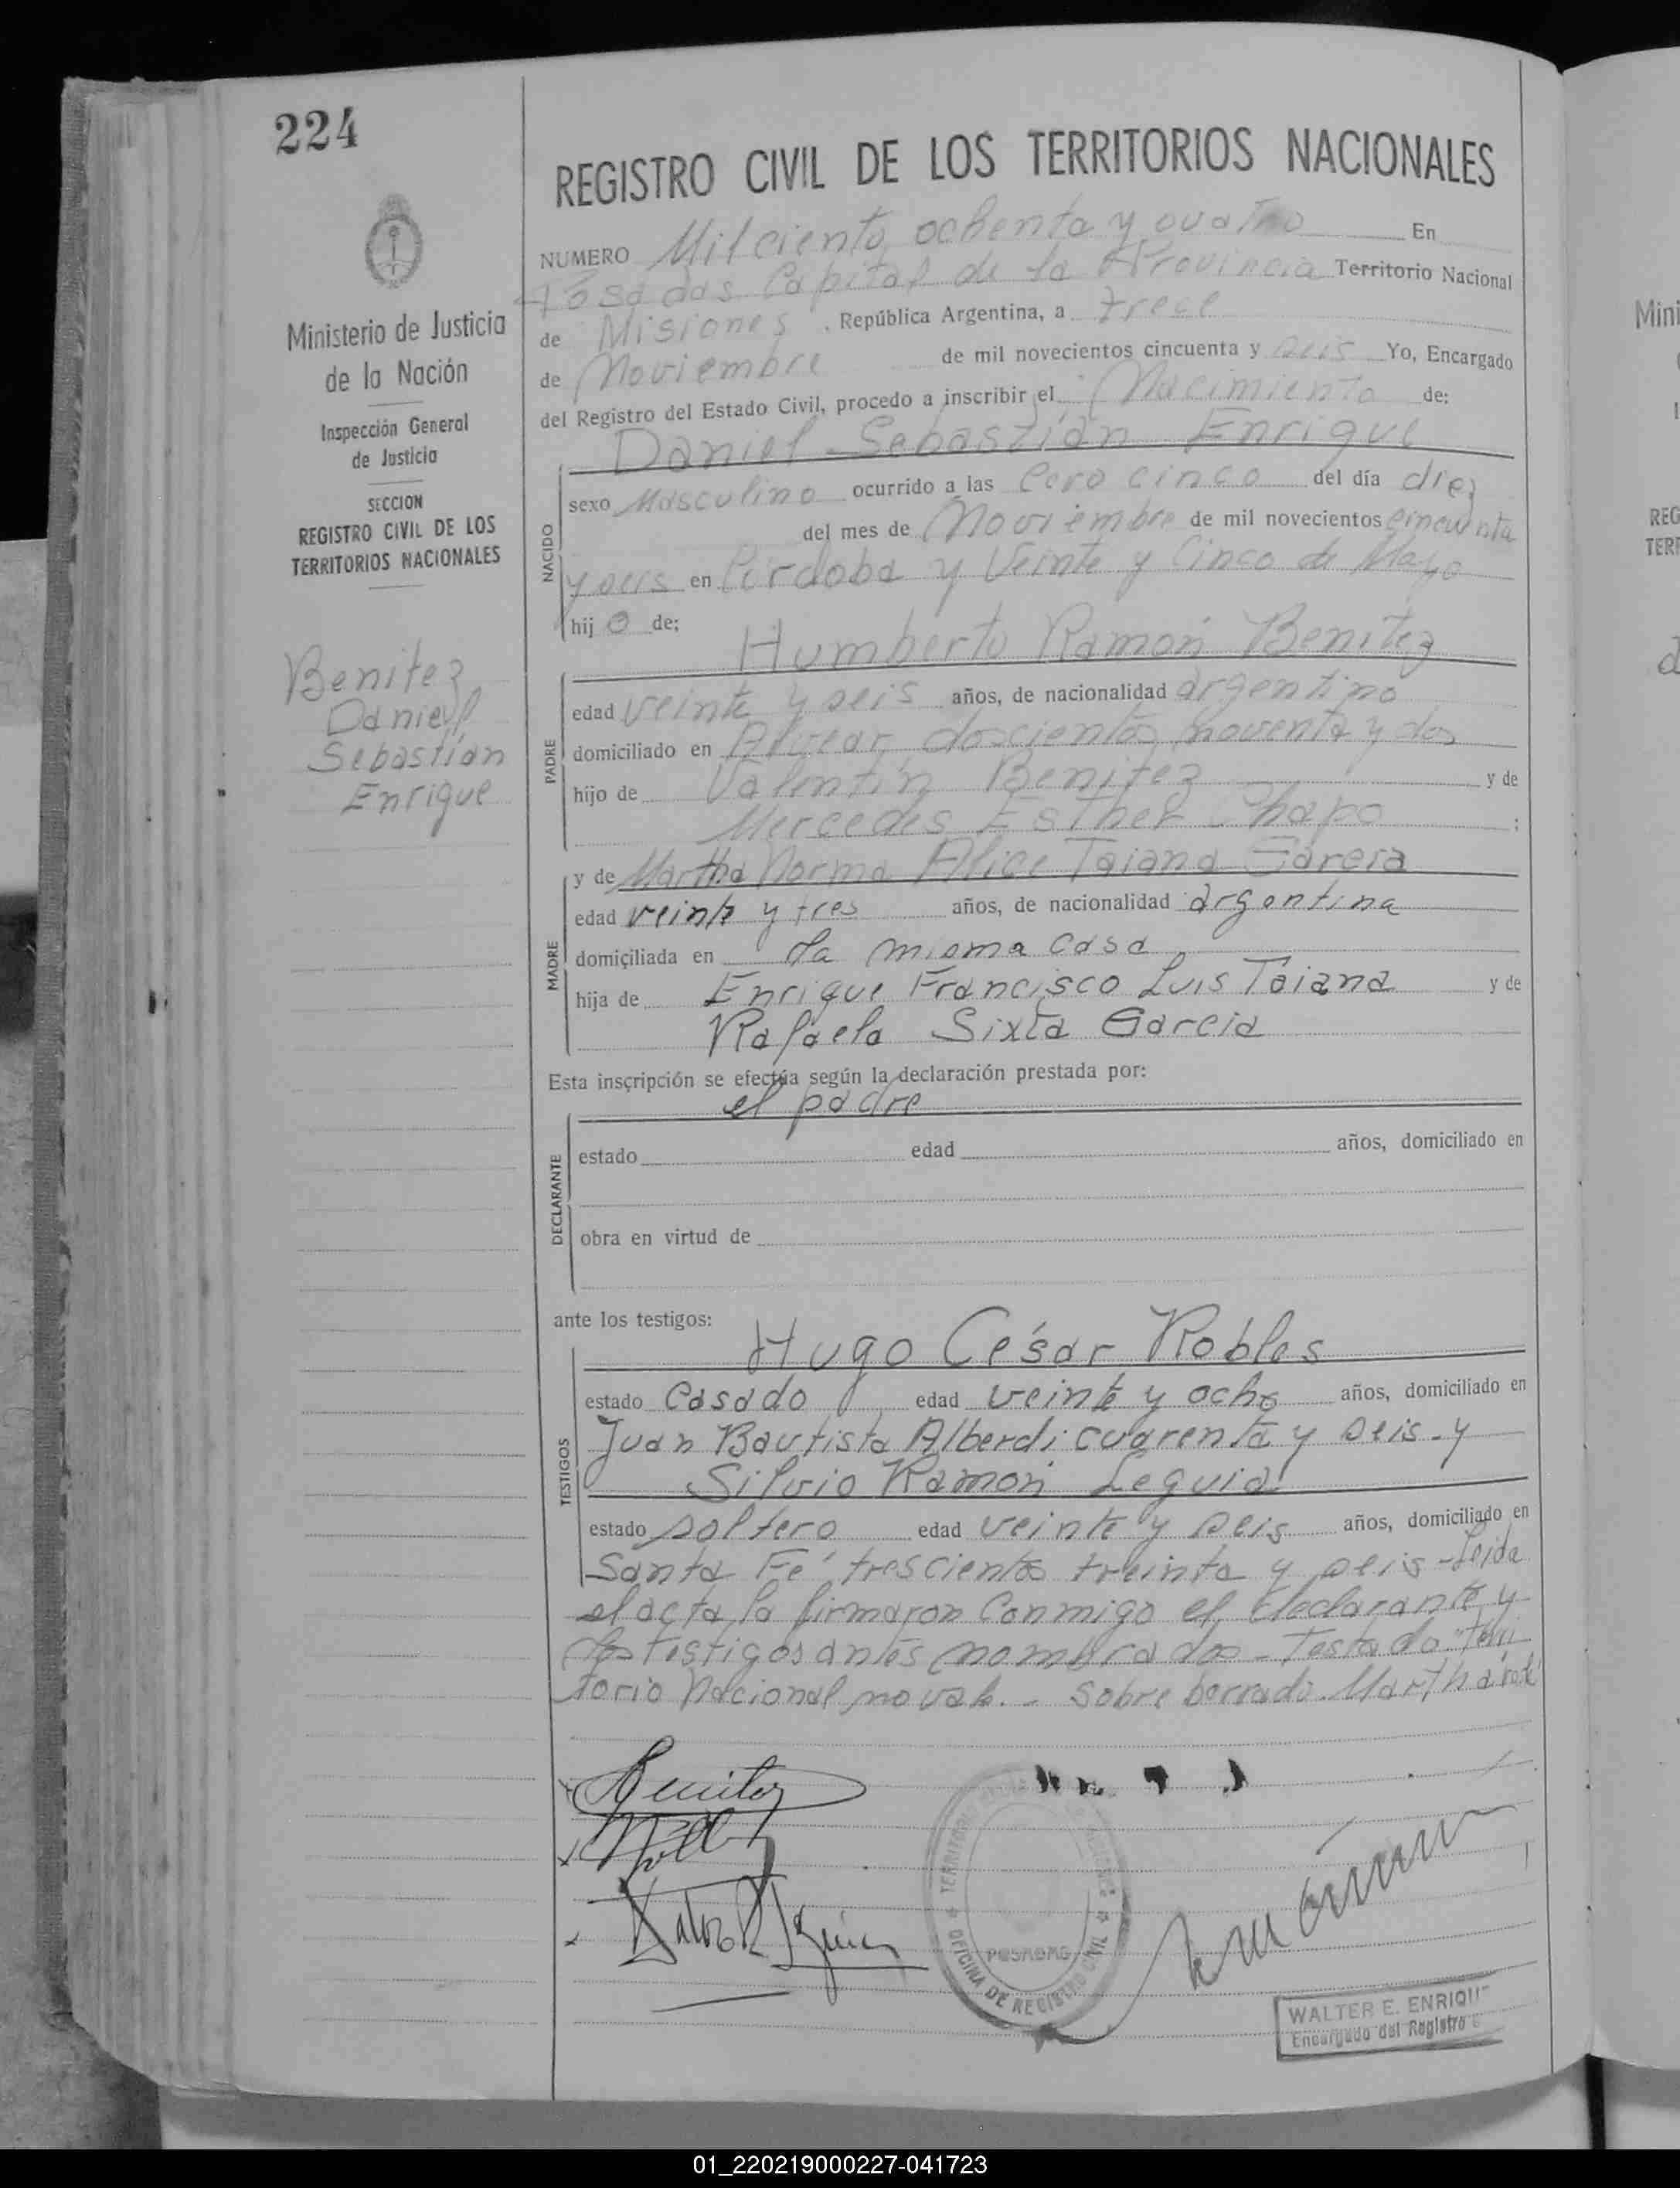 224
REGISTRO CIVIL DE LOS TERRITORIOS NACIONALES
NUMERO Mil ciento ochenta y cuatro En
Posadas Capital de la Provincia Territorio Nacional
de Misiones . República Argentina, a trece
de Noviembre de mil novecientos cincuenta y seis Yo, Encargado
del Registro del Estado Civil, procedo a inscribir el Nacimiento de:
Daniel Sebastián Enrique
NACIDO
sexo Masculino ocurrido a las Cero cinco del día diez
del mes de Noviembre de mil novecientos cincuenta
y seis en Córdoba y Veinte y Cinco de Mayo
hij o de:
Humberto Ramón Benitez
PADRE
edad veinte y seis años, de nacionalidad argentino
domiciliado en Alvear doscientos noventa y dos
hijo de Valentín Benitez y de
Mercedes Esther Chapo ;
MADRE
y de Martha Norma Alice Taiana Garcia
edad veinte y tres años, de nacionalidad argentina
domiciliada en la misma casa
hija de Enrique Francisco Luis Taiana y de
Rafaela Sixta Garcia
Esta inscripción se efectúa según la declaración prestada por:
el padre
DECLARANTE
estado edad años, domiciliado en
obra en virtud de
ante los testigos:
Hugo César Robles
TESTIGOS
estado Casado edad veinte y ocho años, domiciliado en
Juan Bautista Alberdi cuarenta y seis - y
Silvio Ramón Leguia
estado soltero edad veinte y seis años, domiciliado en
Santa Fé trescientos treinta y seis - Leida
el acta la firmaron conmigo el declarante y
los testigos antes nombrados - Testado "Terri
torio Nacional no vale. - Sobre borrado. Martha vale
Ministerio de Justicia
de la Nación
Inspección General
de Justicia
SECCION
REGISTRO CIVIL DE LOS
TERRITORIOS NACIONALES
Benitez
Daniel
Sebastián
Enrique
Benitez
OFICINA DE REGISTRO CIVIL
POSADAS
WALTER E. ENRIQU
Encargado del Registro
Mini
REG
TERR
01_220219000227-041723